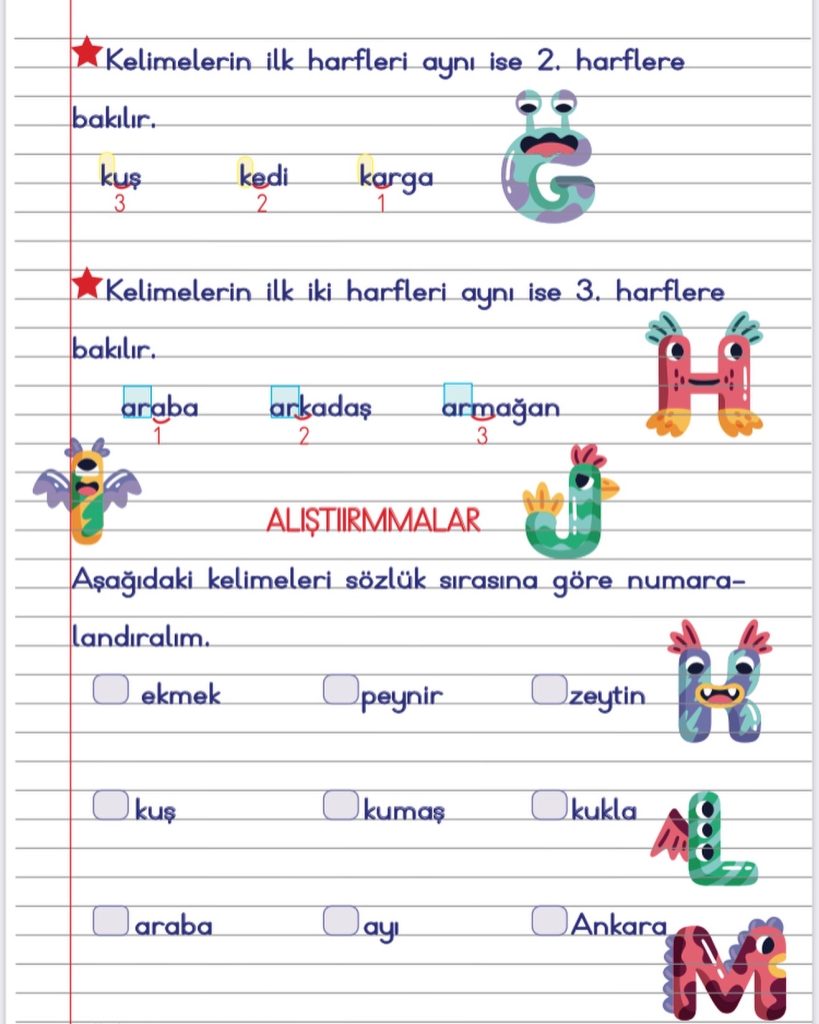 Kelimelerin ilk harfleri aynı ise 2. harflere
bakılır.
kuş kedi karga
3 2 1
Kelimelerin ilk iki harfleri aynı ise 3. harflere
bakılır.
araba arkadaş armağan
1 2 3
ALIŞTIIRMMALAR
Aşağıdaki kelimeleri sözlük sırasına göre numara-
landıralım.
ekmek peynir zeytin
kuş kumaş kukla
araba ayı Ankara